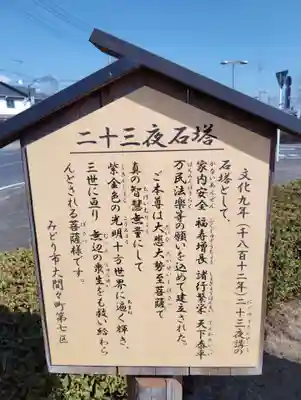 二十三夜石塔
文化九年(一八百十二年)二十三夜講の
石塔として、
家内安全 福寿増長 諸行繁栄 天下泰平
万民法楽等の願いを込めて建立された。
ご本尊は大慈大勢至菩薩で
真の智慧無量にして
紫金色の光明十方世界に遍く輝き、
三世に亘り 無辺の衆生をも救い給わ
んとされる菩薩様です。
みどり市大間々町第七区